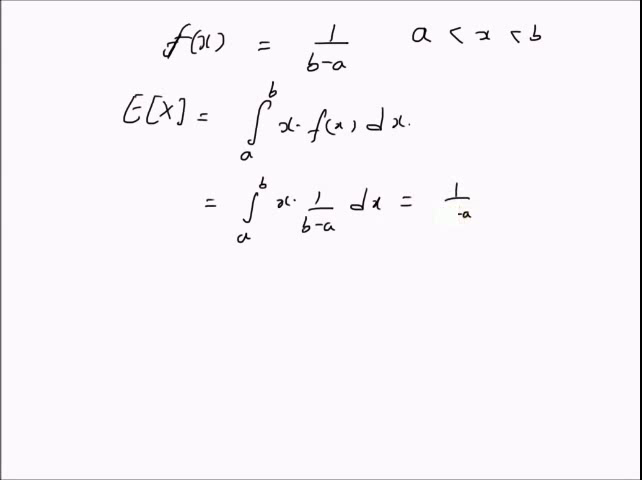 f(x) = 1/(b-a) a < x < b
E[X] = ∫_a^b x· f(x) dx.
= ∫_a^b x· 1/(b-a) dx = 1/(-a)